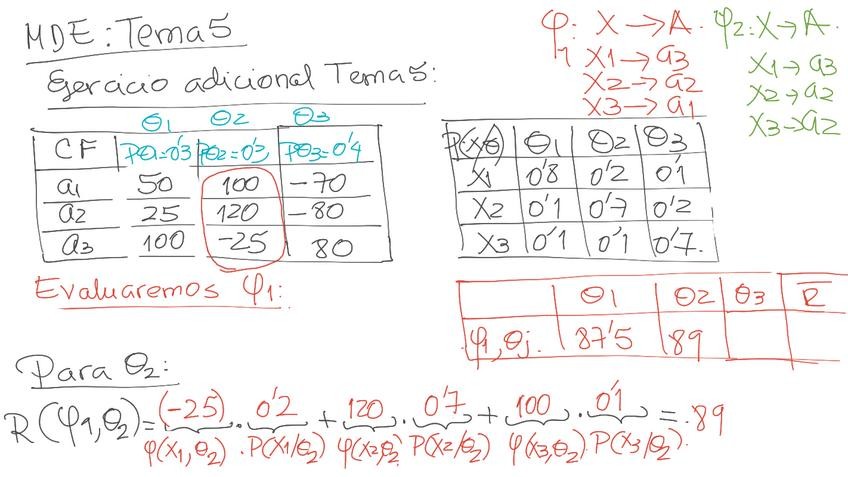 MDE: Tema 5
Ejercicio adicional Tema 5:
φ1: X → A.
X1 → a3
X2 → a2
X3 → a1
φ2: X → A.
X1 → a3
X2 → a2
X3 → a2
θ1 θ2 θ3
CF Pθ1=0'3 Pθ2=0'3 Pθ3=0'4
a1 50 100 -70
a2 25 120 -80
a3 100 -25 80
P(X/θ) θ1 θ2 θ3
X1 0'8 0'2 0'1
X2 0'1 0'7 0'2
X3 0'1 0'1 0'7.
Evaluaremos φ1:
θ1 θ2 θ3 R̅
φ1, θj. 87'5 89
Para θ2:
R(φ1,θ2)=(-25).0'2 + 120.0'7 + 100.0'1 = 89
φ(X1,θ2) . P(X1/θ2) φ(X2,θ2) P(X2/θ2) φ(X3,θ2) P(X3/θ2).